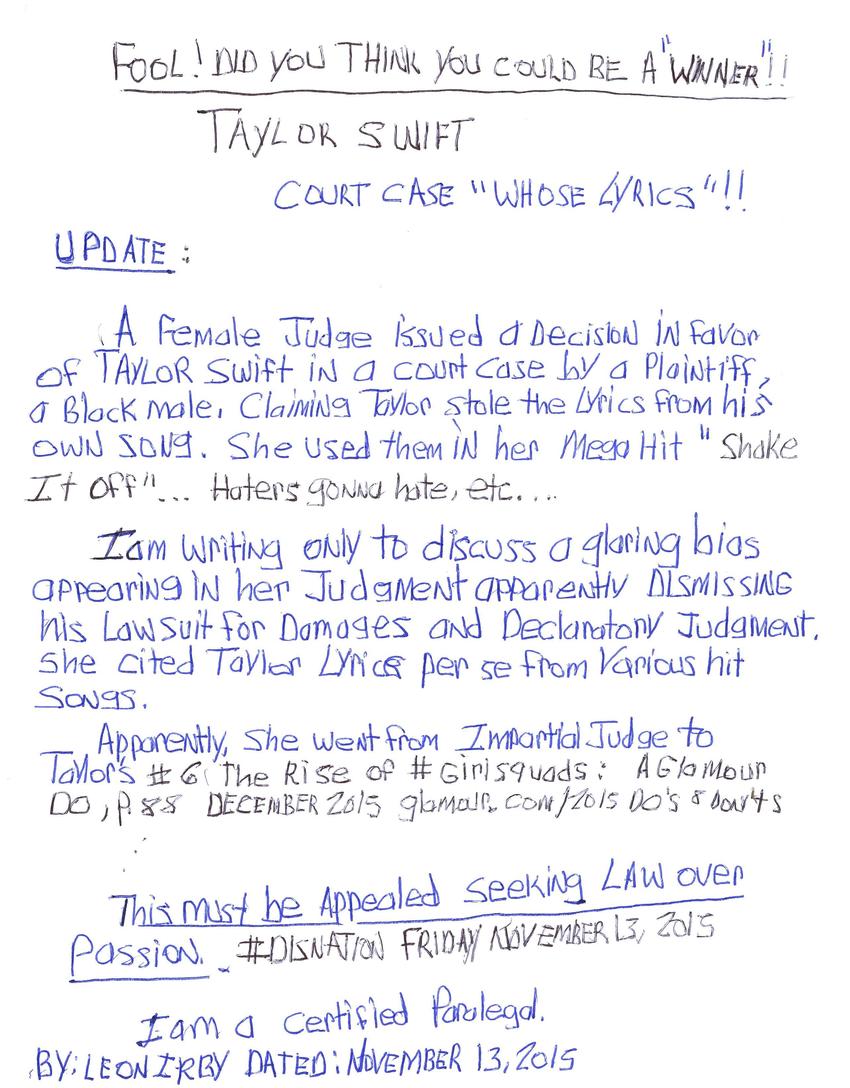 FOOL! DID YOU THINK YOU COULD BE A "WINNER"!!
TAYLOR SWIFT
COURT CASE "WHOSE LYRICS"!!
UPDATE:
A Female Judge issued a Decision in favor
of TAYLOR Swift in a court case by a Plaintiff,
a Black male, Claiming Taylor stole the Lyrics from his
OWN SONG. She used them IN her Mega Hit "Shake
It Off"... Haters gonna hate, etc....
I am writing only to discuss a glaring bias
appearing IN her Judgment apparently DISMISSING
his Lawsuit for Damages and Declaratory Judgment.
She cited Taylor Lyrics per se from Various hit
Songs.
Apparently, she went from Impartial Judge to
Taylor's #6 The Rise of #Girlsquads: A Glamour
DO, P. 88 DECEMBER 2015 glamour.com/2015 DO's & Don'ts
This must be Appealed seeking LAW over
Passion. #DISNATION FRIDAY NOVEMBER 13, 2015
I am a Certified Paralegal.
BY: LEON IRBY DATED: NOVEMBER 13, 2015